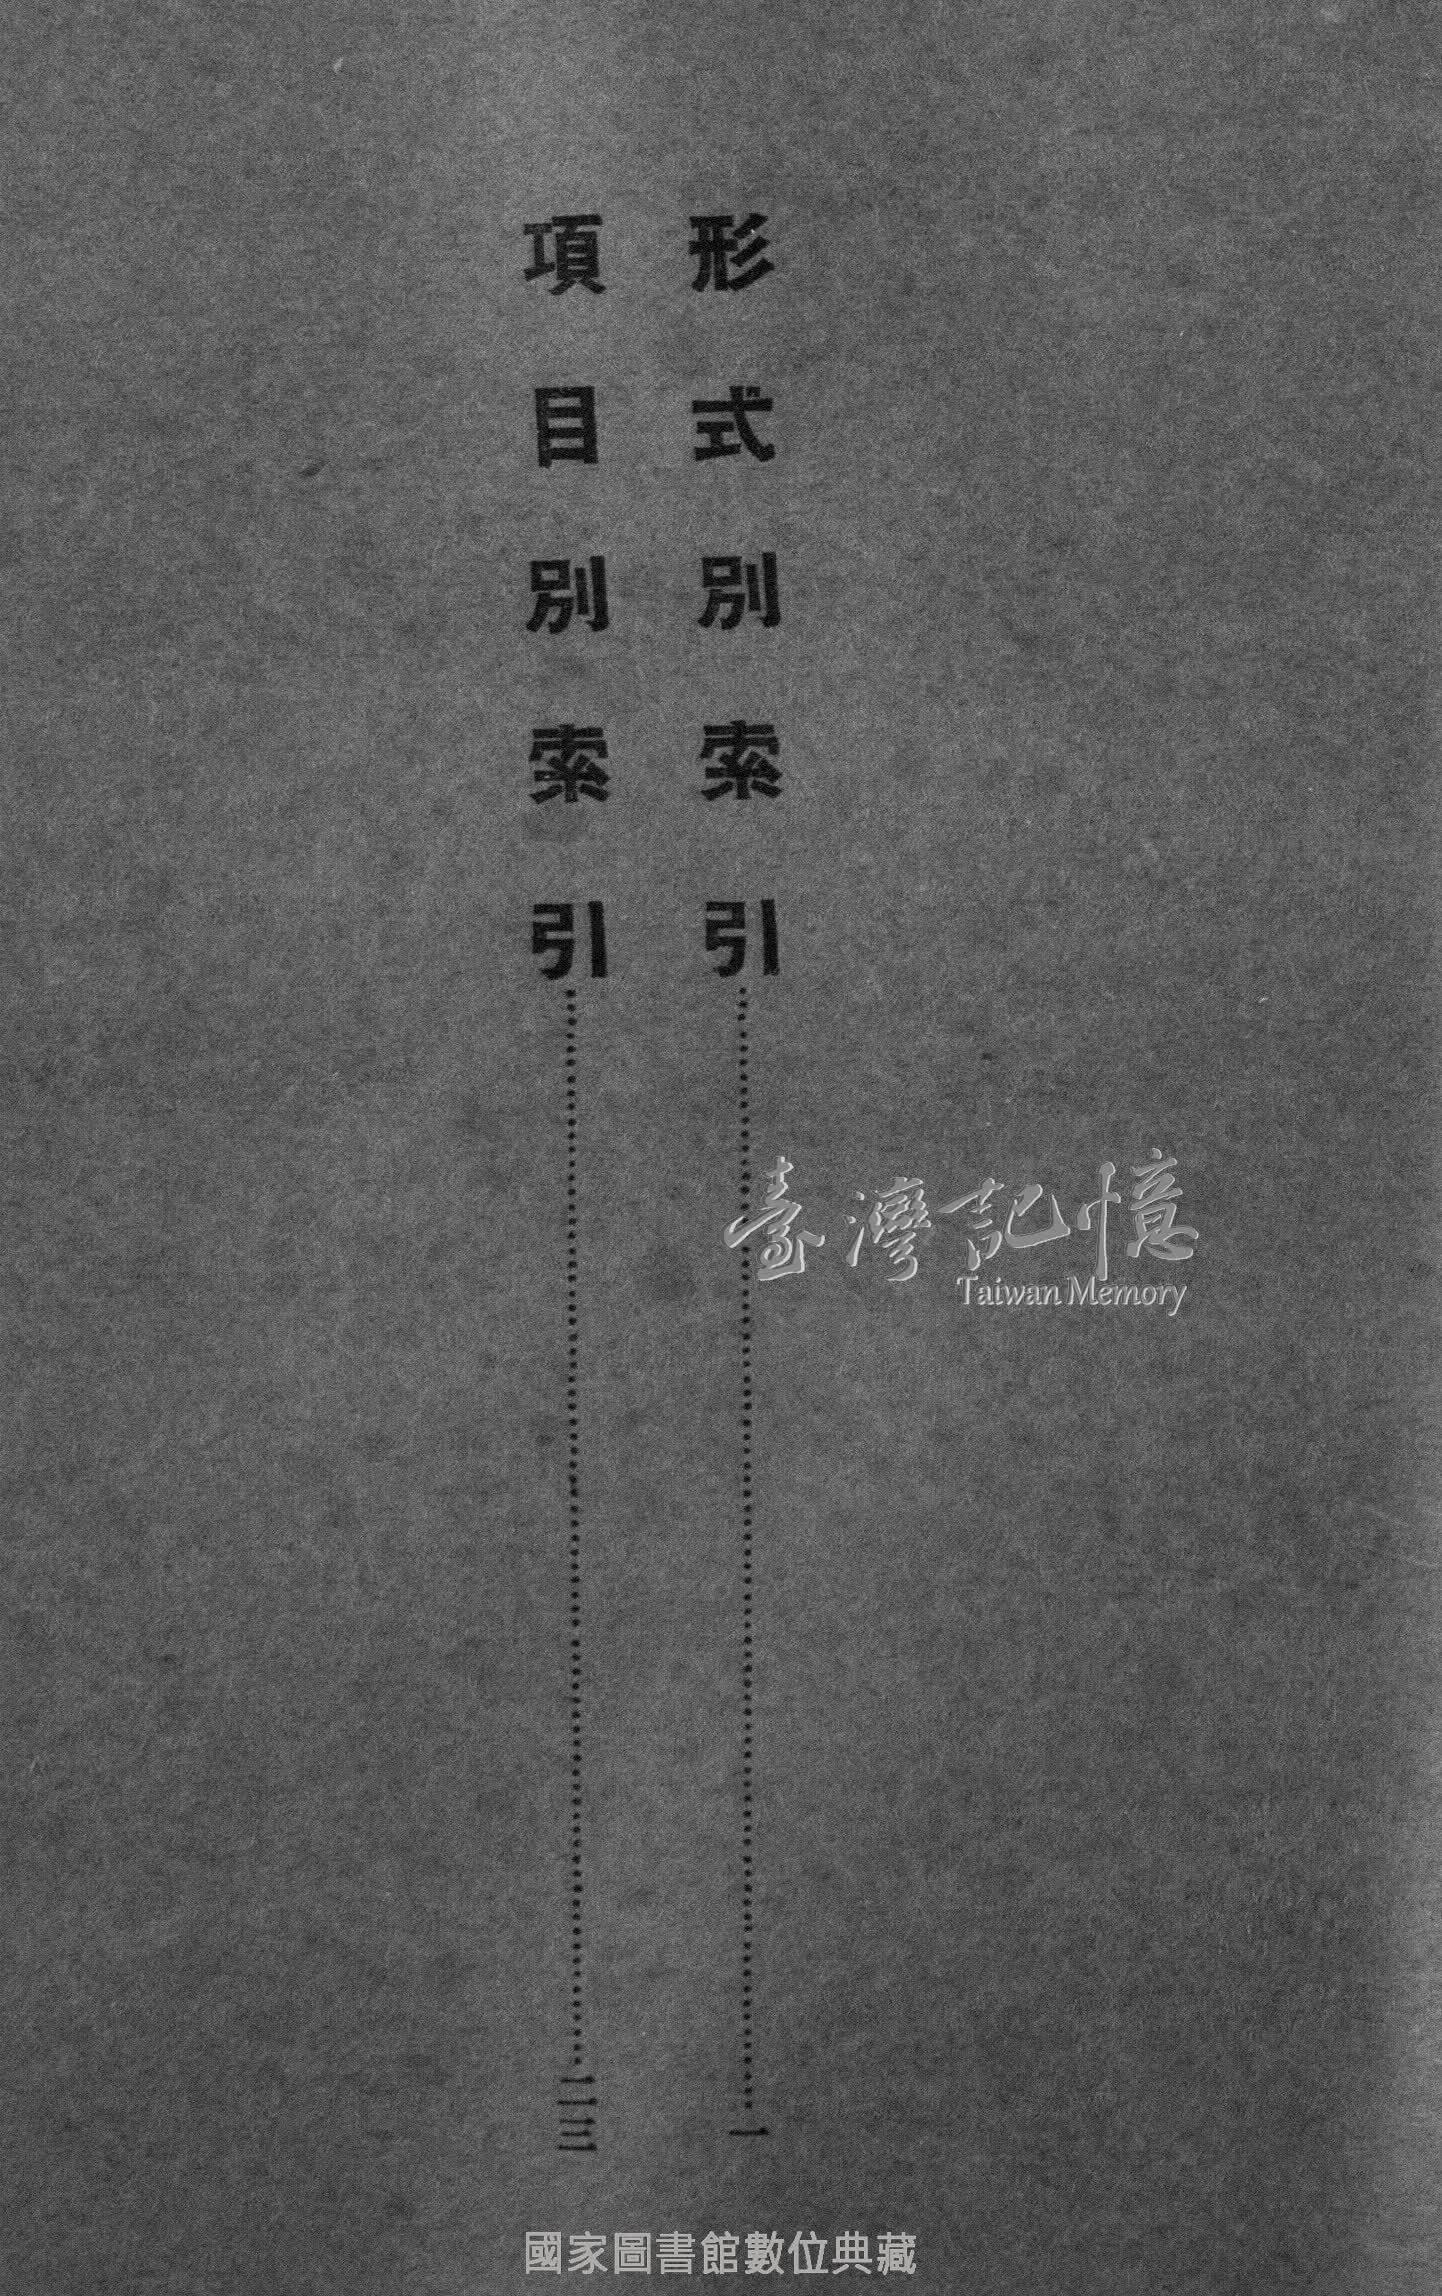 形式別索引……………………一
項目別索引……………………二三
臺灣記憶
Taiwan Memory
國家圖書館數位典藏